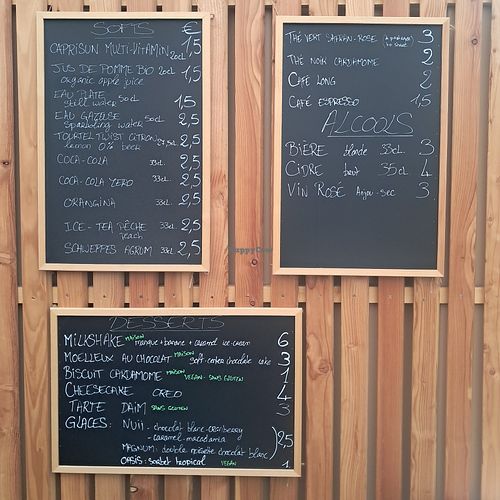 SOFTS €
CAPRISUN MULTI-VITAMIN 20cl 1,5
JUS DE POMME BIO 20cl 1,5
organic apple juice
EAU PLATE 50cl 1,5
still water
EAU GAZEUSE 50cl 2,5
sparkling water
TOURTEL TWIST CITRON 27,5cl 2,5
lemon 0% beer
COCA-COLA 33cl 2,5
COCA-COLA ZERO 33cl 2,5
ORANGINA 33cl 2,5
ICE-TEA PÊCHE 33cl 2,5
peach
SCHWEPPES AGRUM 33cl 2,5
THÉ VERT SAFRAN-ROSE 3
THÉ NOIR CARDAMOME 2
CAFÉ LONG 2
CAFÉ ESPRESSO 1,5
ALCOOLS
BIÈRE blonde 33cl 3
CIDRE brut 35cl 4
VIN ROSÉ Anjou-sec 3
DESSERTS
MILKSHAKE MAISON mangue + banane + caramel ice-cream 6
MOELLEUX AU CHOCOLAT MAISON soft-center chocolate cake 3
BISCUIT CARDAMOME MAISON VEGAN - SANS GLUTEN 1
CHEESECAKE OREO 4
TARTE DAIM SANS GLUTEN 3
GLACES: NUII - chocolat blanc-cranberry
- caramel-macadamia 2,5
MAGNUM: double noisette chocolat blanc
OASIS: sorbet tropical VEGAN 1
HappyCow